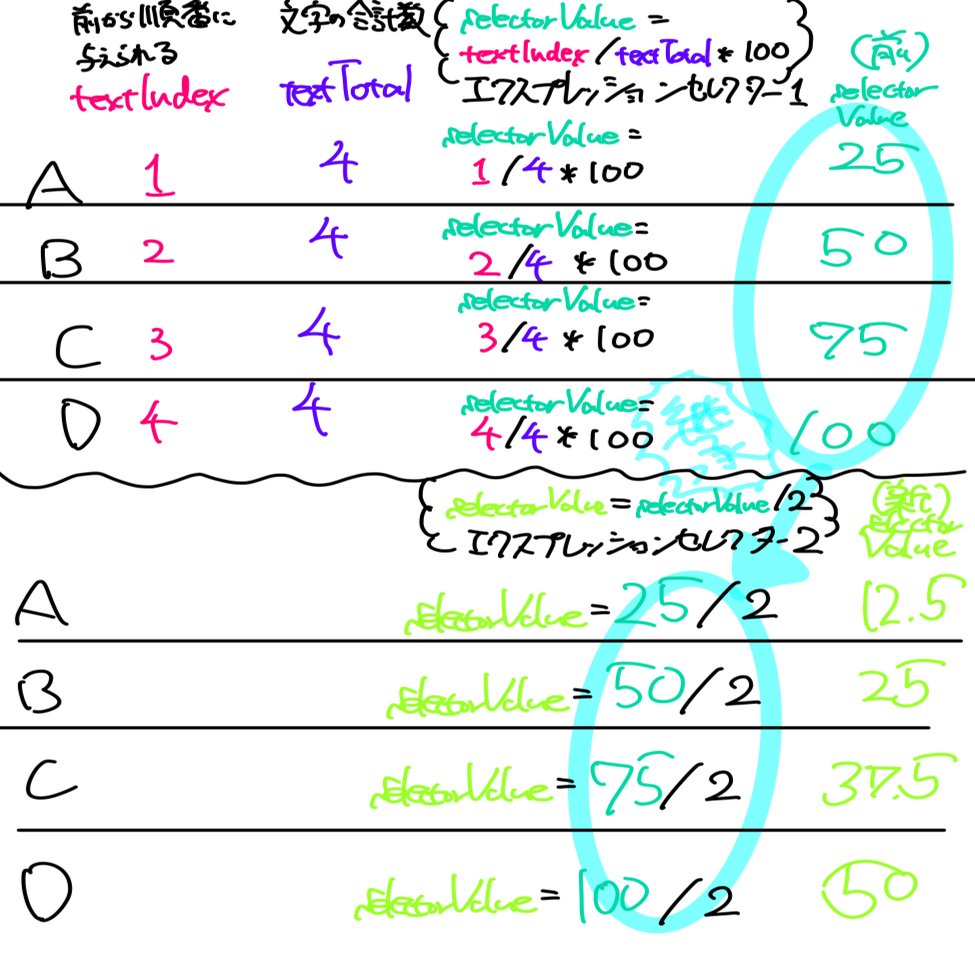 前から順番に
与えられる
textIndex
文字の合計数
textTotal
selectorValue =
textIndex/textTotal*100
エクスプレッションセレクター1
(前)
selector
Value
A 1 4 selectorValue =
1/4*100 25
B 2 4 selectorValue=
2/4 *100 50
C 3 4 selectorValue=
3/4 *100 75
D 4 4 selectorValue=
4/4*100 100
継承
selectorValue=selectorValue/2
エクスプレッションセレクター2
(新)
selector
Value
A selectorValue=25/2 12.5
B selectorValue=50/2 25
C selectorValue=75/2 37.5
D selectorValue=100/2 50